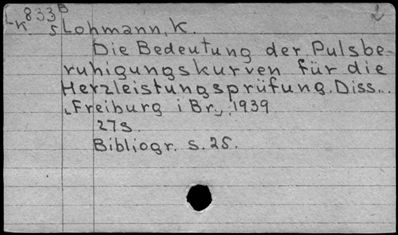 L 833 B
K. S Lohmann, K.
Die Bedeutung der Pulsbe-
ruhigungskurven für die
Herzleistungsprüfung. Diss..
Freiburg i Br., 1939
27s.
Bibliogr. s. 25.